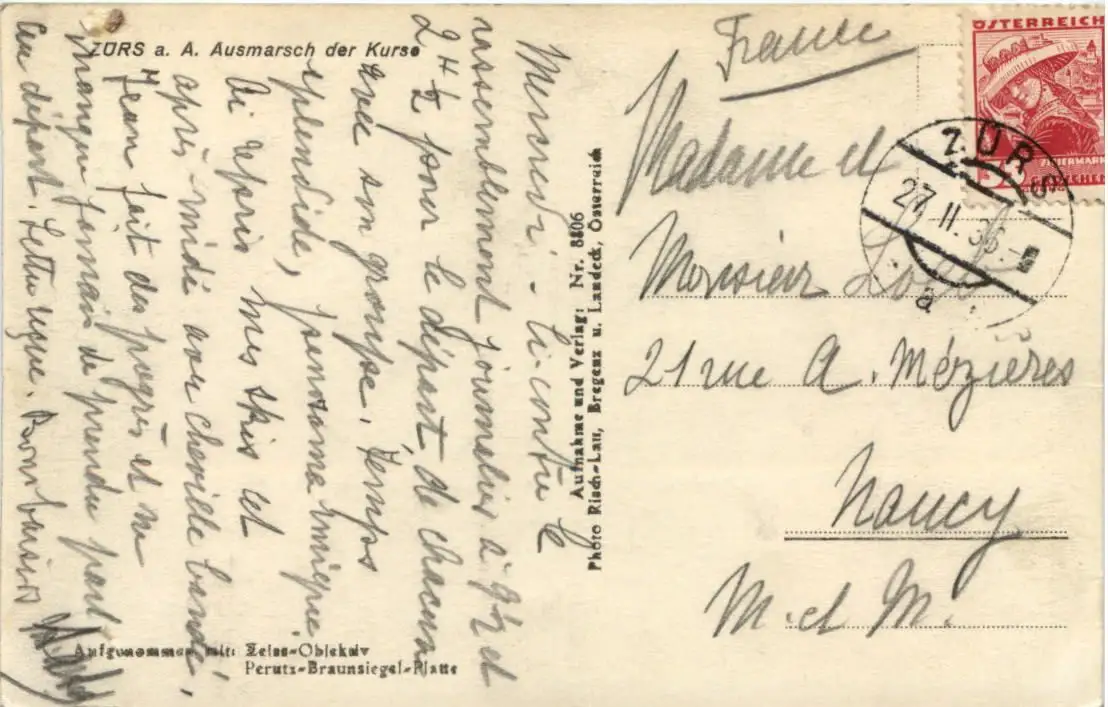 ZÜRS a. A. Ausmarsch der Kurse
Mercredi - Ci-contre le
rassemblement journalier à 9½ et
2 H ½ pour le départ de chacun
avec son groupe. Temps
splendide, panorama unique
Ai repris mes skis cet
après-midi avec cheville bandée,
Jean fait des progrès et ne
manque jamais de prendre part
au départ. Lettre reçue. Bons baisers
Aufgenommen mit: Zeiss-Objektiv
Perutz-Braunsiegel-Platte
Aufnahme und Verlag: Nr. 8806
Photo Risch-Lau, Bregenz u. Landeck, Österreich
France
ÖSTERREICH
STEIERMARK
GROSCHEN
ZÜRS
27.II.36.-
a
Madame et
Monsieur
21 rue A. Mézières
Nancy
M. et M.